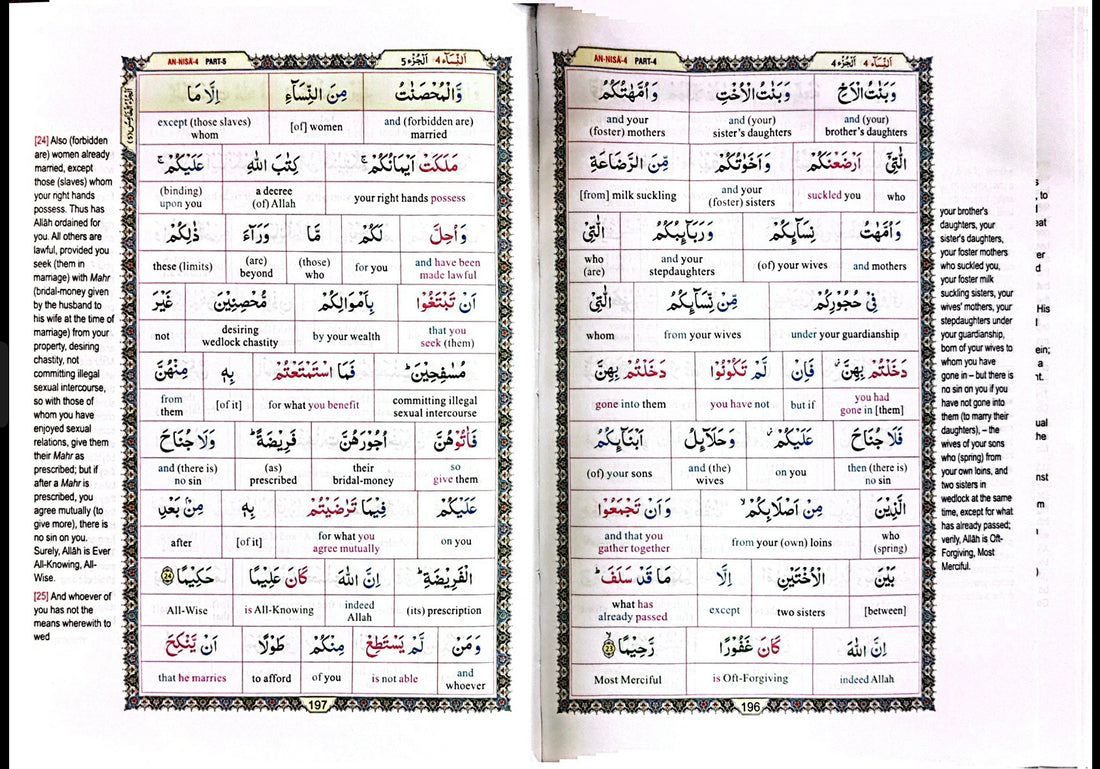 AN-NISĀ-4 PART-4 اَلْجُزْء ٤ اَلنِّسَآء ٤
وَبَنٰتُ الْاَخِ وَبَنٰتُ الْاُخْتِ وَاُمَّهٰتُكُمُ
and (your) brother's daughters and (your) sister's daughters and your (foster) mothers
الّٰتِيْٓ اَرْضَعْنَكُمْ وَاَخَوٰتُكُمْ مِّنَ الرَّضَاعَةِ
who suckled you and your (foster) sisters [from] milk suckling
وَاُمَّهٰتُ نِسَآىِٕكُمْ وَرَبَآىِٕبُكُمُ الّٰتِيْ
and mothers (of) your wives and your stepdaughters who (are)
فِيْ حُجُوْرِكُمْ مِّنْ نِّسَآىِٕكُمُ الّٰتِيْ
under your guardianship from your wives whom
دَخَلْتُمْ بِهِنَّ ۡ فَاِنْ لَّمْ تَكُوْنُوْا دَخَلْتُمْ بِهِنَّ
you had gone in [them] but if you have not gone into them
فَلَا جُنَاحَ عَلَيْكُمْ ۡ وَحَلَآىِٕلُ اَبْنَآىِٕكُمُ
then (there is) no sin on you and (the) wives (of) your sons
الَّذِيْنَ مِنْ اَصْلَابِكُمْ ۙ وَاَنْ تَجْمَعُوْا
who (spring) from your (own) loins and that you gather together
بَيْنَ الْاُخْتَيْنِ اِلَّا مَا قَدْ سَلَفَ ؕ
[between] two sisters except what has already passed
اِنَّ اللّٰهَ كَانَ غَفُوْرًا رَّحِيْمًا ۙ 23
indeed Allah is Oft-Forgiving Most Merciful
196
your brother's
daughters, your
sister's daughters,
your foster mothers
who suckled you,
your foster milk
suckling sisters, your
wives' mothers, your
stepdaughters under
your guardianship,
born of your wives to
whom you have
gone in – but there is
no sin on you if you
have not gone into
them (to marry their
daughters), – the
wives of your sons
who (spring) from
your own loins, and
two sisters in
wedlock at the same
time, except for what
has already passed;
verily, Allāh is Oft-
Forgiving, Most
Merciful.
AN-NISĀ-4 PART-5 اَلْجُزْء ٥ اَلنِّسَآء ٤
وَّالْمُحْصَنٰتُ مِنَ النِّسَآءِ اِلَّا مَا
and (forbidden are) married [of] women except (those slaves) whom
مَلَكَتْ اَيْمَانُكُمْ ۚ كِتٰبَ اللّٰهِ عَلَيْكُمْ ۚ
your right hands possess a decree (of) Allah (binding) upon you
وَاُحِلَّ لَكُمْ مَّا وَرَآءَ ذٰلِكُمْ
and have been made lawful for you (those) who (are) beyond these (limits)
اَنْ تَبْتَغُوْا بِاَمْوَالِكُمْ مُّحْصِنِيْنَ غَيْرَ
that you seek (them) by your wealth desiring wedlock chastity not
مُسٰفِحِيْنَ ؕ فَمَا اسْتَمْتَعْتُمْ بِهٖ مِنْهُنَّ
committing illegal sexual intercourse for what you benefit [of it] from them
فَاٰتُوْهُنَّ اُجُوْرَهُنَّ فَرِيْضَةً ؕ وَلَا جُنَاحَ
so give them their bridal-money (as) prescribed and (there is) no sin
عَلَيْكُمْ فِيْمَا تَرٰضَيْتُمْ بِهٖ مِنْۢ بَعْدِ
on you for what you agree mutually [of it] after
الْفَرِيْضَةِ ؕ اِنَّ اللّٰهَ كَانَ عَلِيْمًا حَكِيْمًا 24
(its) prescription indeed Allah is All-Knowing All-Wise
وَمَنْ لَّمْ يَسْتَطِعْ مِنْكُمْ طَوْلًا اَنْ يَّنْكِحَ
and whoever is not able of you to afford that he marries
197
[24] Also (forbidden
are) women already
married, except
those (slaves) whom
your right hands
possess. Thus has
Allāh ordained for
you. All others are
lawful, provided you
seek (them in
marriage) with Mahr
(bridal-money given
by the husband to
his wife at the time of
marriage) from your
property, desiring
chastity, not
committing illegal
sexual intercourse,
so with those of
whom you have
enjoyed sexual
relations, give them
their Mahr as
prescribed; but if
after a Mahr is
prescribed, you
agree mutually (to
give more), there is
no sin on you.
Surely, Allāh is Ever
All-Knowing, All-
Wise.
[25] And whoever of
you has not the
means wherewith to
wed